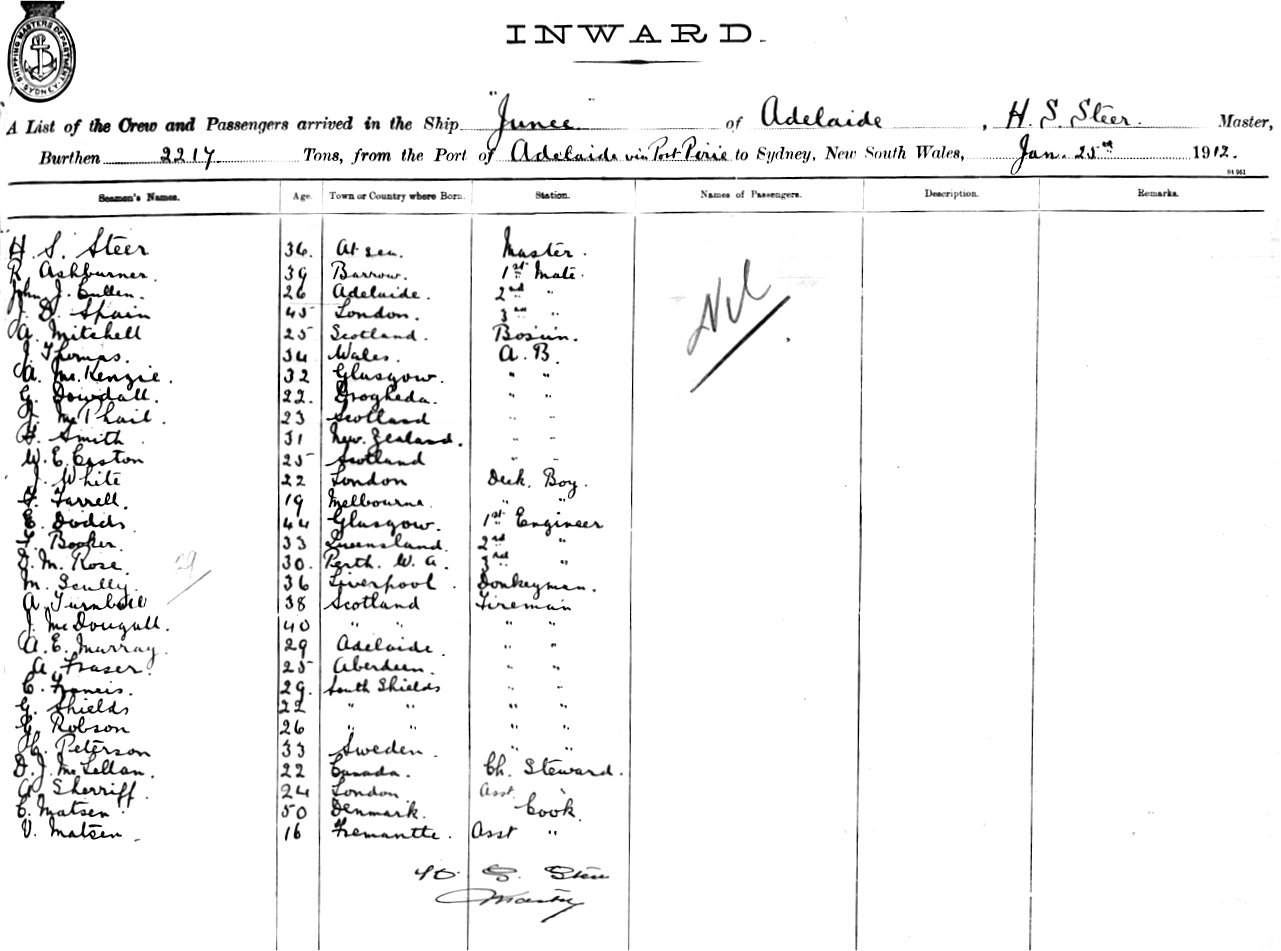 SHIPPING MASTERS DEPARTMENT SYDNEY
INWARD.
A List of the Crew and Passengers arrived in the Ship "Junee" of Adelaide, H. S. Steer. Master,
Burthen 2217 Tons, from the Port of Adelaide via Port Pirie to Sydney, New South Wales, Jan. 25th 1912.
St 961
Seamen's Names. Age. Town or Country where Born. Station. Names of Passengers. Description. Remarks.
H. S. Steer 36. At sea. Master.
R. Ashburner. 39 Barrow. 1st Mate. Nil
John J. Cullen. 26 Adelaide. 2nd "
J. D. Spain 45 London. 3rd "
A. Mitchell 25 Scotland. Bosun.
J. Thomas. 34 Wales. A. B.
A. McKenzie. 32 Glasgow. " "
G. Dowdall. 22. Drogheda. " "
J. McPhail. 23 Scotland " "
H. Smith 31 New Zealand. " "
W. E. Easton 25 Scotland " "
J. White 22 London Deck Boy.
F. Farrell. 19 Melbourne " "
E. Dodds 44 Glasgow. 1st Engineer
Booker. 33 Queensland. 2nd "
J. M. Rose. 30. Perth. W. A. 3rd "
29
M. Scully. 36 Liverpool. Donkeyman.
A. Turnbull 38 Scotland Fireman
J. McDougall. 40 " " " "
A. E. Murray. 29 Adelaide. " "
A. Fraser. 25 Aberdeen. " "
C. Francis. 29. South Shields " "
G. Shields 22 " " " "
Robson 26 " " " "
C. Peterson 33 Sweden. " "
D. J. McLellan. 22 Canada. Ch. Steward.
A. Sherriff. 24 London Asst. "
C. Matsen 50 Denmark. Cook.
V. Matsen 16 Fremantle. Asst "
H. S. Steer
Master